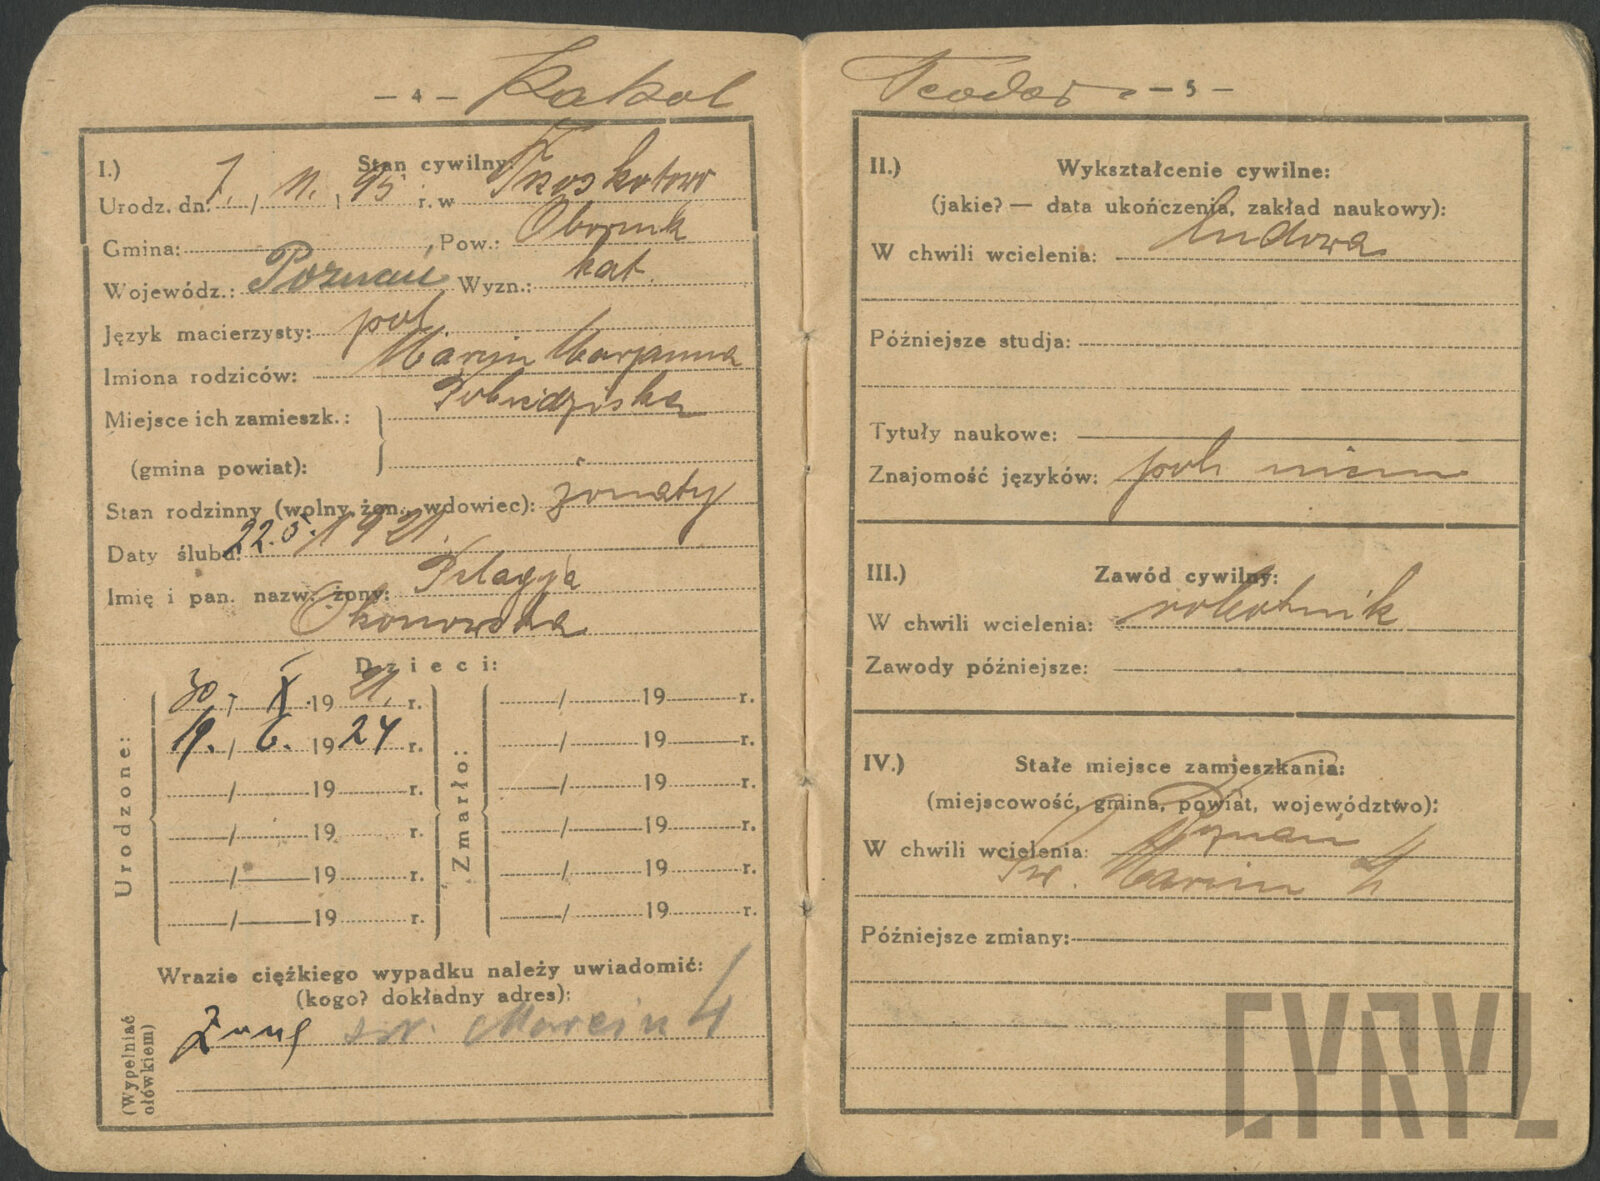 — 4 — Kąkol
I.) Stan cywilny:
Urodz. dn. 7. / 11. 95 r. w
Gmina: Pow.: Obornik
Wojewódz.: Poznań Wyzn.: kat.
Język macierzysty: pol.
Imiona rodziców: Marcin Marjanna
Miejsce ich zamieszk.: Pobiedziska
(gmina powiat):
Stan rodzinny (wolny, żon., wdowiec): żonaty
Daty ślubu: 22.5.1921.
Imię i pan. nazw. żony: Pelagja
Okonowska
Dzieci:
Urodzone:
30 / X. 1921. r.
19. / 6. 1924 r.
/ 19 r.
/ 19 r.
/ 19 r.
/ 19 r.
Zmarło:
/ 19 r.
/ 19 r.
/ 19 r.
/ 19 r.
/ 19 r.
/ 19 r.
Wrazie ciężkiego wypadku należy uwiadomić:
(kogo? dokładny adres):
(Wypełniać ołówkiem)
Żonę św. Marcin 4
Teodor — 5 —
II.) Wykształcenie cywilne:
(jakie? — data ukończenia, zakład naukowy):
W chwili wcielenia: ludowa
Późniejsze studja:
Tytuły naukowe:
Znajomość języków: pol. niem
III.) Zawód cywilny:
W chwili wcielenia: robotnik
Zawody późniejsze:
IV.) Stałe miejsce zamieszkania:
(miejscowość, gmina, powiat, województwo):
W chwili wcielenia: Poznań
Św. Marcin 4
Późniejsze zmiany:
CYRYL